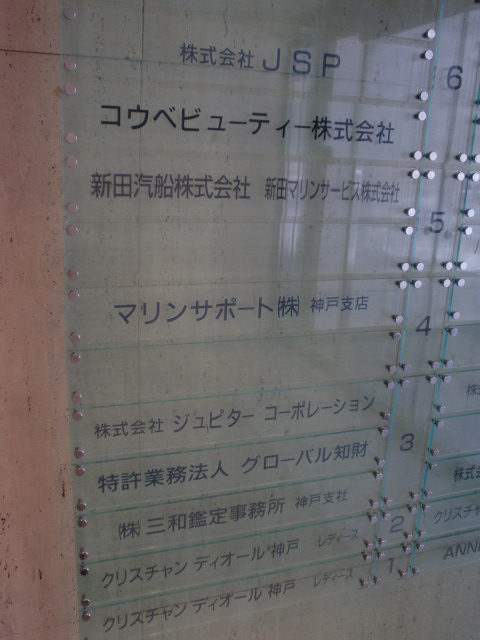 株式会社 JSP
6
コウベビューティー株式会社
新田汽船株式会社 新田マリンサービス株式会社
5
マリンサポート㈱ 神戸支店
4
株式会社 ジュピター コーポレーション
3
特許業務法人 グローバル知財
株式
㈱三和鑑定事務所 神戸支社
2
クリスチャン ディオール 神戸 レディース
クリスチャ
1
クリスチャン ディオール 神戸 レディース
ANN